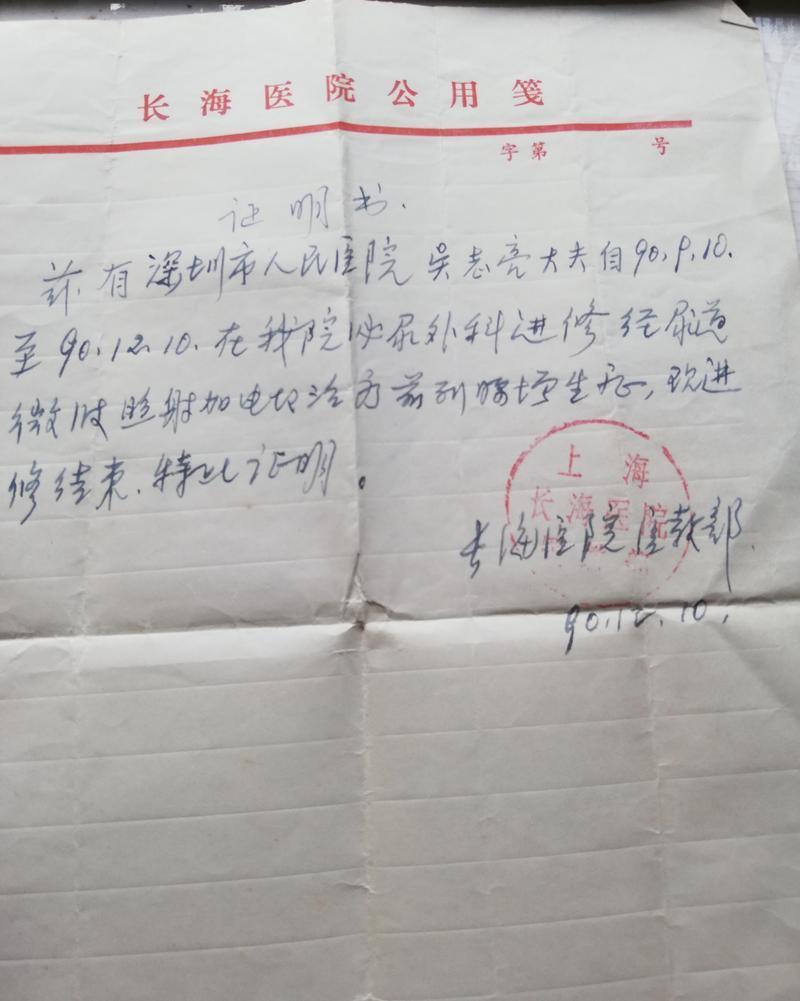 长海医院公用笺
字第 号
证明书.
兹有深圳市人民医院吴志亮大夫自90.9.10.
至90.12.10.在我院泌尿外科进修经尿道
微波照射加电切治疗前列腺增生症,现进
修结束.特此证明。
上海
长海医院
长海医院医教部
90.12.10.